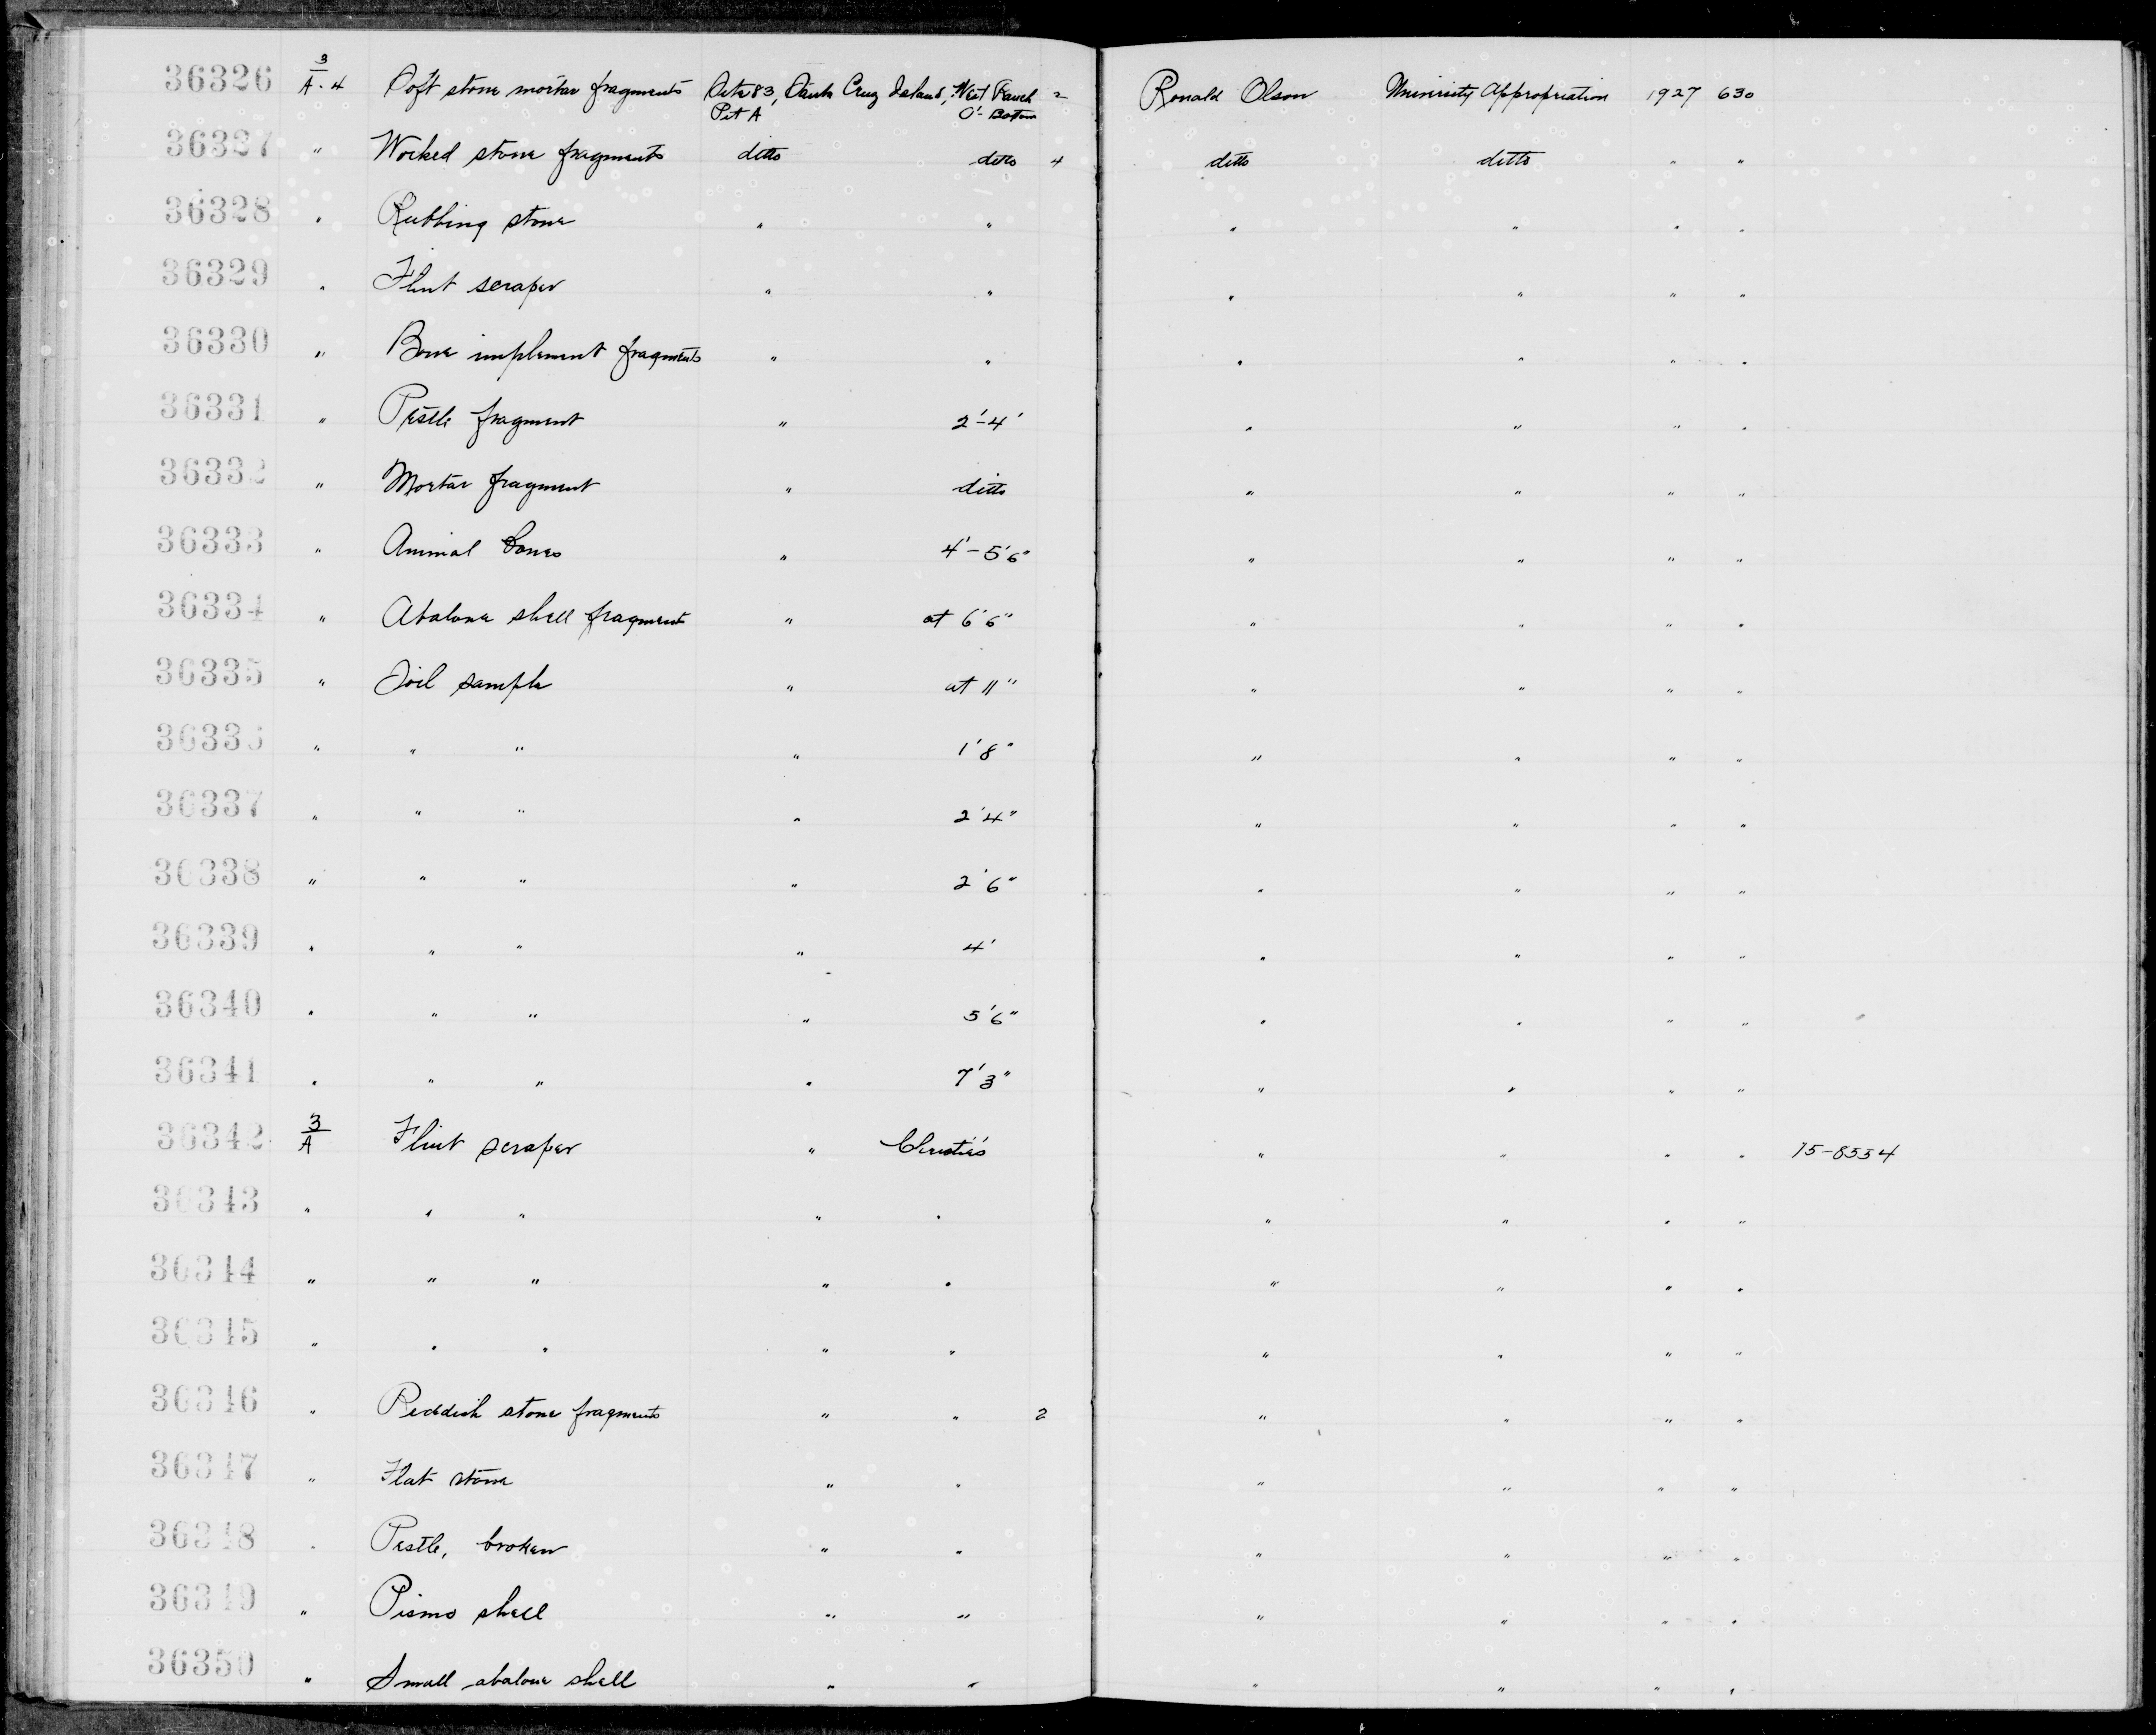 36326 3/A-4 Soft stone mortar fragments Site 83, Santa Cruz Island, West Ranch 2 Ronald Olson University Appropriation 1927 630
Pit A 0'- Bottom
36327 " Worked stone fragments ditto ditto 4 ditto ditto " "
36328 " Rubbing stone " " " " " "
36329 " Flint scraper " " " " " "
36330 " Bone implement fragments " " " " " "
36331 " Pestle fragment " 2'-4' " " " "
36332 " Mortar fragment " ditto " " " "
36333 " Animal bones " 4'-5'6" " " " "
36334 " Abalone shell fragments " at 6'6" " " " "
36335 " Soil sample " at 11" " " " "
36336 " " " " 1'8" " " " "
36337 " " " " 2'4" " " " "
36338 " " " " 2'6" " " " "
36339 " " " " 4' " " " "
36340 " " " " 5'6" " " " "
36341 " " " " 7'3" " " " "
36342 3/A Flint scraper " Christie's " " " " 15-8534
36343 " " " " " " " " "
36344 " " " " " " " " "
36345 " " " " " " " " "
36346 " Reddish stone fragments " " 2 " " " "
36347 " Flat stone " " " " " "
36348 " Pestle, broken " " " " " "
36349 " Pismo shell " " " " " "
36350 " Small abalone shell " " " " " "